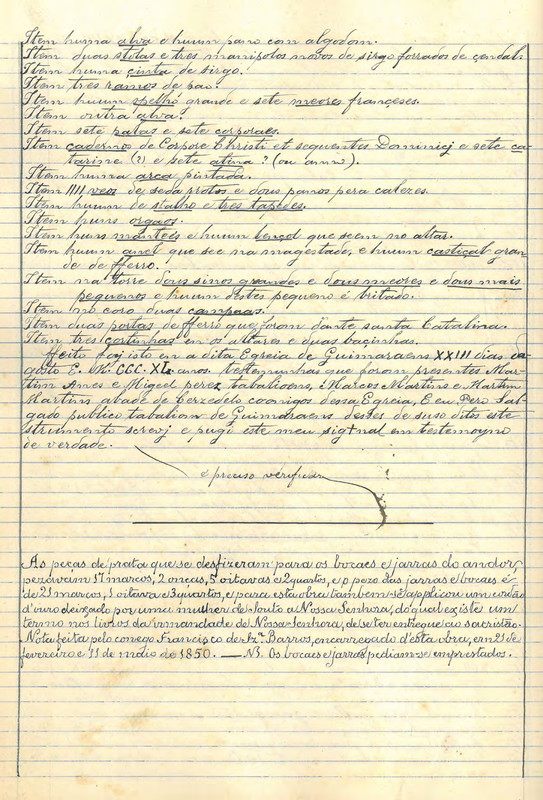 Item huma alva e huum pano com algodom.
Item duas stolas e tres manipolos novos de sirgo forrados de çendal.
Item huma çinta de sirgo.
Item tres ramos de pao.
Item huum spelho grande e sete meores françeses.
Item outra alva.
Item sete palas e sete corporaes.
Item cadernos de Corpore Christi et sequentes Dominicj e sete ca-
tarine (?) e sete atina? (ou anno).
Item huma arca pintada.
Item IIII veos de seda rotos e dous panos pera calezes.
Item huum de stalho e tres tapedes.
Item huns orgãos.
Item huns mantées e huum lençol que seem no altar.
Item huum anel que see na magestade, e huum castiçal gran
de de fferro.
Item na torre dous sinos grandes e dous meores e dous mais
pequenos e huum destes pequeno é britado.
Item no coro duas campaas.
Item duas portas de fferro que foram d'ante santa Catalina.
Item tres cortinhas en os altares e duas bacinhas.
ffeito foj isto en a dita Egreia de Guimaraens XXIII dias da-
gosto E. M. CCC. XL anos. testemunhas que forom presentes Mar-
tim Anes e Migeel perez tabalioens, e Marcos Martins e Martim
Martins abade de Cerzedelo coonigos dessa Egreia, E eu Pero Sal-
gado publico tabaliom de Guimaraens destes de suso ditos este
strumento screvj e pugi este meu sig+nal em testemoyno
de verdade.
é preciso verificar
As peças de prata que se desfizeram para os bocaes e jarras do andor,
pezavam 17 marcos, 2 onças, 5 oitavas e 2 quartos, e o pezo das jarras e bocaes é
de 21 marcos, 1 oitava e 3 quartos, e para esta obra tambem se applicou um cordão
d'ouro deixado por uma mulher de Souto a Nossa Senhora, do qual existe um
termo nos livros da irmandade de Nossa Senhora, de ser entregue ao sacristão.
Nota feita pelo conego Francisco de Barros, encarregado d'esta obra, em 21 de
fevereiro e 11 de maio de 1850. — NB. Os bocaes e jarras pediam-se emprestados.